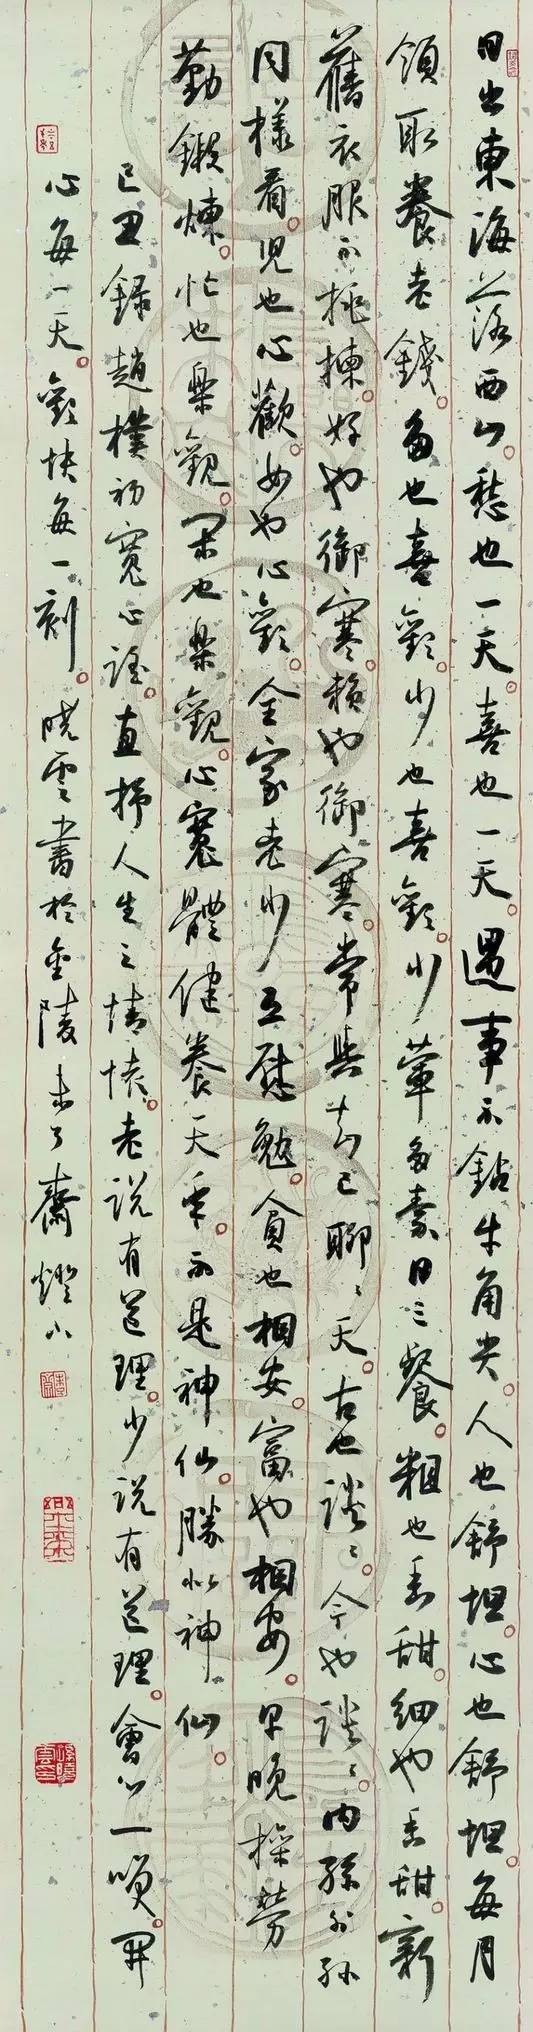 日出東海落西山。愁也一天。喜也一天。遇事不鈷牛角尖。人也舒坦。心也舒坦。每月
領取養老錢。多也喜歡。少也喜歡。少葷多素日三餐。粗也香甜。細也香甜。新
舊衣服不挑揀。好也御寒。賴也御寒。常與知己聊聊天。古也談談。今也談談。内孫外孙
同樣看。児也心歡。女也心歡。全家老少互慰勉。貧也相安。富也相安。早晚操勞
勤鍛煉。忙也樂觀。闲也樂觀。心寬體健養天年。不是神仙。勝似神仙。
己丑錄趙樸初寬心謠。直抒人生之情懷。老説有道理。少説有道理。會心一唄。開
心每一天。歡快每一刻。曉雲書於金陵未了齋燈下